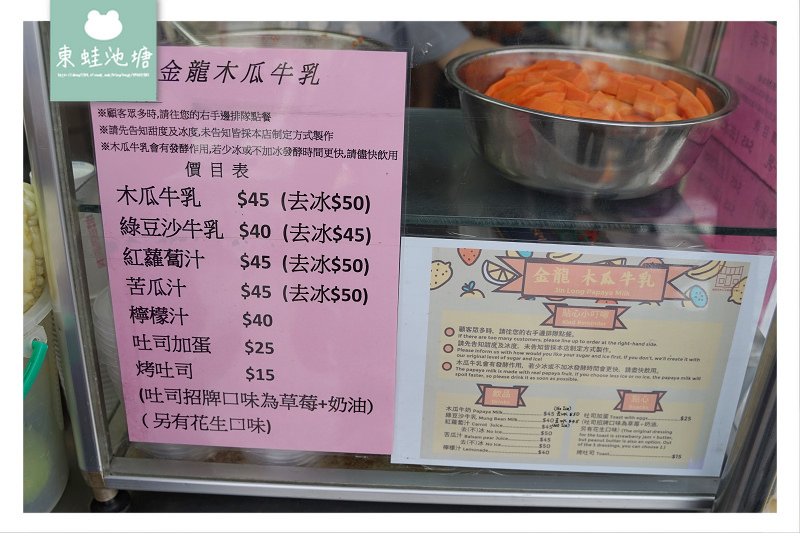 東蛙池塘
金龍木瓜牛乳
※顧客眾多時,請往您的右手邊排隊點餐
※請先告知甜度及冰度,未告知皆採本店制定方式製作
※木瓜牛乳會有發酵作用,若少冰或不加冰發酵時間更快,請儘快飲用
價目表
木瓜牛乳 $45 (去冰$50)
綠豆沙牛乳 $40 (去冰$45)
紅蘿蔔汁 $45 (去冰$50)
苦瓜汁 $45 (去冰$50)
檸檬汁 $40
吐司加蛋 $25
烤吐司 $15
(吐司招牌口味為草莓+奶油)
(另有花生口味)
金龍 木瓜牛乳
Jin Long Papaya Milk
貼心小叮嚀
Kind Reminder
顧客眾多時,請往您的右手邊排隊點餐。
If there are too many customers, please line up to order at the right-hand side.
請先告知甜度及冰度,未告知皆採本店制定方式製作。
Please inform us with how would you like your sugar and ice first. If you don't, we'll create it with our original level of sugar and ice!
木瓜牛乳會有發酵作用,若少冰或不加冰發酵時間會更快,請儘快飲用。
The papaya milk is made with real papaya fruit. If you choose less ice or no ice, the papaya milk will spoil faster, so please drink it as soon as possible.
飲品
木瓜牛奶 Papaya Milk $45
綠豆沙牛乳 Mung Bean Milk $40
紅蘿蔔汁 Carrot Juice $45
去(不)冰 No Ice $50
苦瓜汁 Balsam peer Juice $45
去(不)冰 No Ice $50
檸檬汁 Lemonade $40
點心
吐司加蛋 Toast with eggs $25
(吐司招牌口味為草莓+奶油,
另有花生口味) (The original dressing
for the toast is strawberry jam + butter,
but peanut butter is also an option. Out
of the 3 dressings, you can choose 2.)
烤吐司 Toast $15